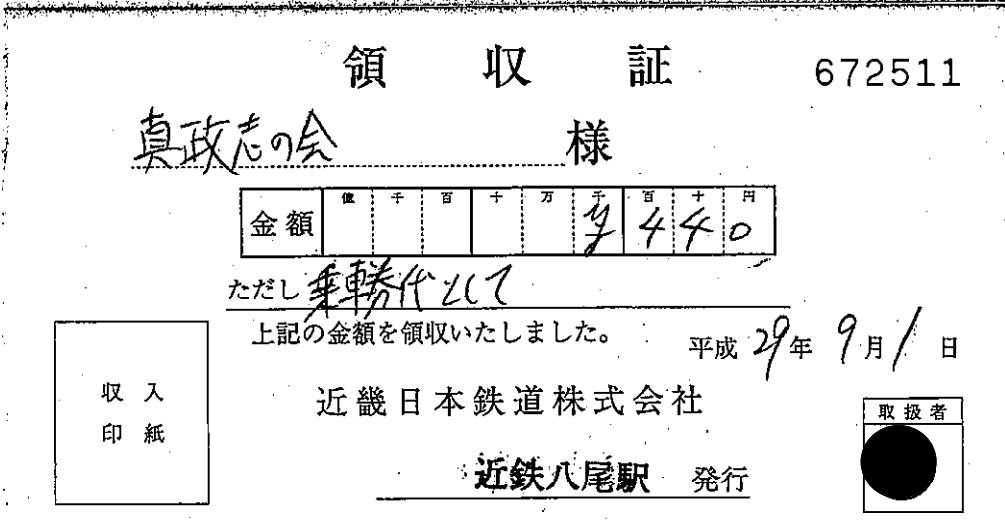 領収証 672511
真政志の会 様
億 千 百 十 万 千 百 十 円
金額 ¥440
ただし 乗車券代として
上記の金額を領収いたしました。
平成29年9月1日
収入
印紙
近畿日本鉄道株式会社
取扱者
近鉄八尾駅 発行